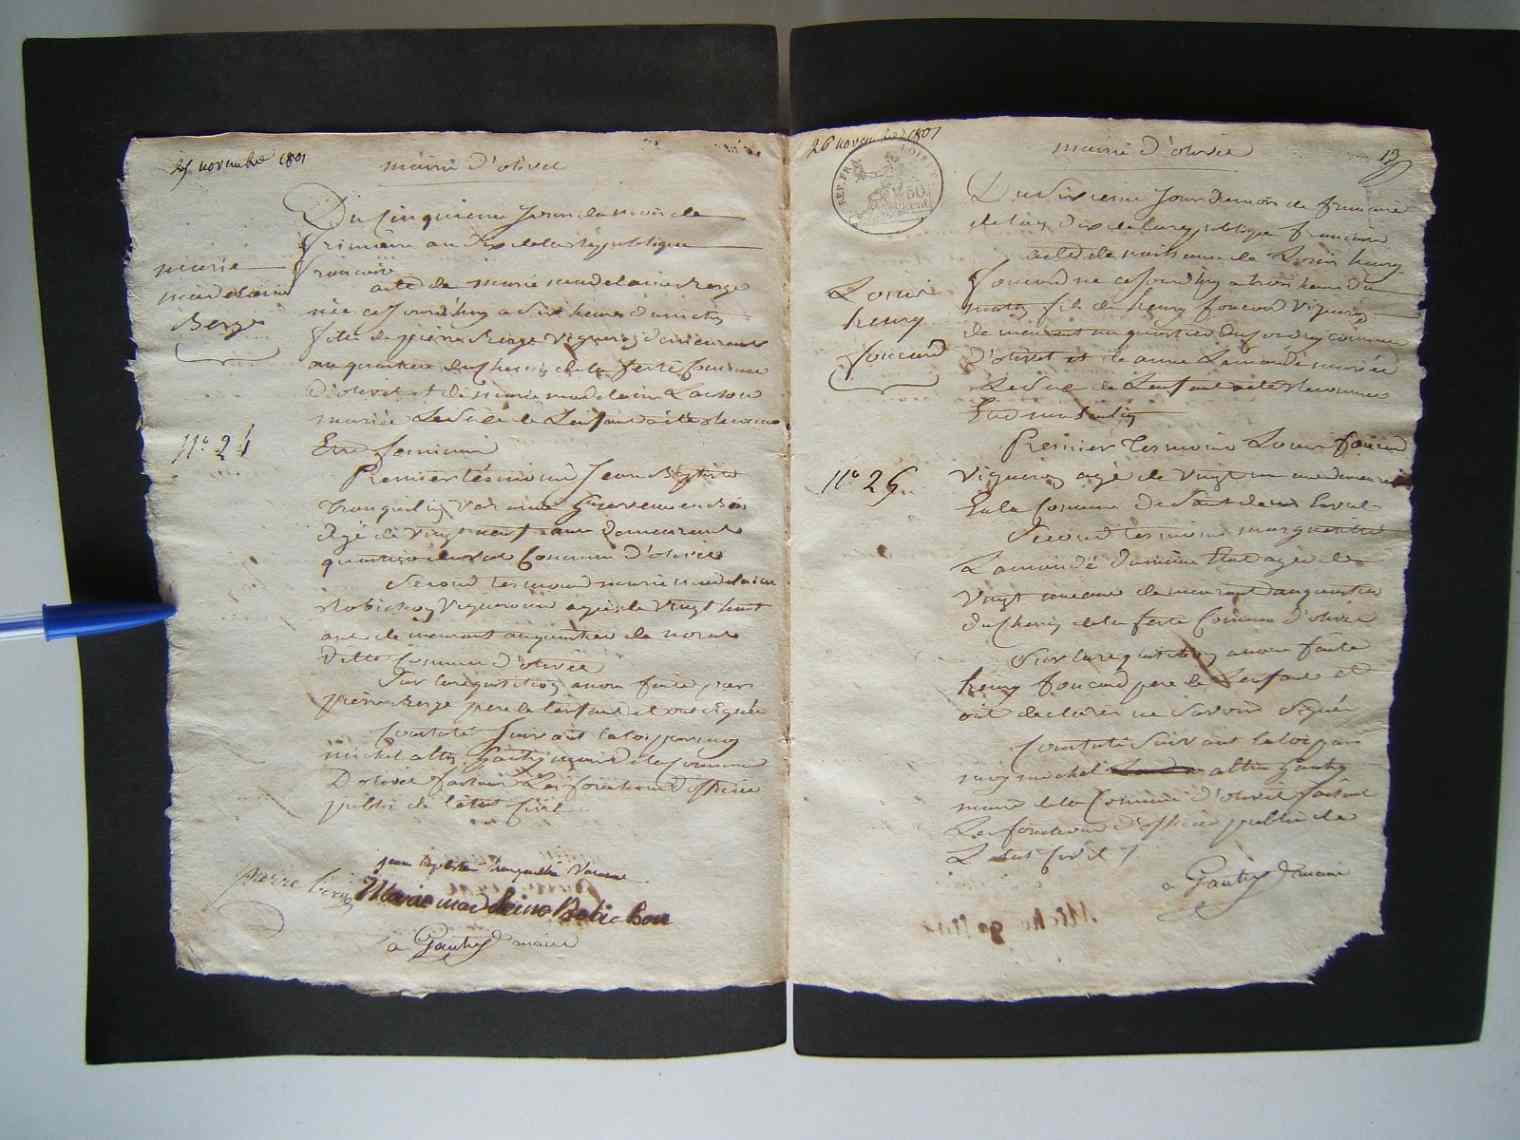 26 novembre 1801
mairie d'olivet
Du Cinquieme Jour du mois de
frimaire an dix de la Republique
francaise
marie
madelaine
Berge
acte de marie madelaine Berge
née ce Jourdhuy a Six heures du matin
fille de pierre Berge Vigneron demeurant
au quartier du Chemin de la ferté Commune
d'olivet et de marie madelaine
mariée Le Sexe de Lenfant a été reconnu
Etre feminin
n° 24
Premier tesmoins Jean Baptiste
tranquilin
agé de Vingt neuf ans demeurant
quartier du Val Commune d'olivet
Second tesmoins marie madelaine
Robichon Vigneronne agée de Vingt huit
ans demeurant au quartier de
ditte Commune d'olivet
Sur la requisition a nous faite par
pierre Berge pere de lenfant et ont signé
Constaté Suivant la loi par moy
michel altin Gautry maire de la Commune
D'olivet faisant Les fonctions d'officier
public de l'état Civil
jean baptiste tranquille
pierre berge
Marie madeleine Robichon
a Gautry maire
26 novembre 1801
REP. FRA.
50
mairie d'olivet
13
Du Sixieme Jour du mois de frimaire
de l'an dix de la republique francaise
Louis
henry
foucard
acte de naissance de Louis henry
foucard né ce Jourdhuy a trois heures du
matin fils de henry foucard Vigneron
demeurant au quartier du Commune
d'olivet et de anne Lamandé mariée
Le Sexe de Lenfant a été reconnu
Etre masculin
n° 25
Premier tesmoins Louis foucard
Vigneron agé de Vingt un ans demeurant
En la Commune de
Second tesmoins marguerite
Lamandé agée de
Vingt ans demeurant au quartier
du Chemin de la ferté Commune d'olivet
Sur la requisition a nous faite
henry foucard pere de Lenfant et
ont declarés ne Savoir Signer
Constaté Suivant la loi par
moy michel altin Gautry
maire de la Commune d'olivet faisant
Les fonctions d'officier public de
L'état Civil
a Gautry maire